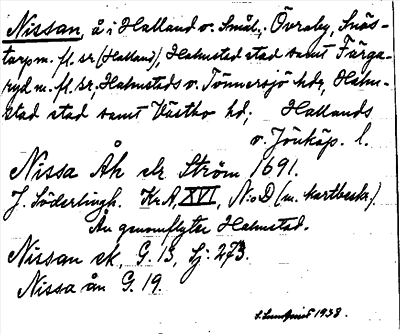 Nissan, å i Halland o. Smål.; Övraby, Snös-
tarp m. fl. sr (Halland), Halmstad stad samt Färga-
ryd m. fl. sr, Halmstads o. Tönnersjö hdr, Halm-
stad stad samt Västbo hd; Hallands
o. Jönköp. l.
Nissa Åh elr Ström 1691.
J. Söderlingh. Kr.A, XVI, N:o D (m. kartbeskr.)
Ån genomflyter Halmstad.
Nissan ek, G. 13, Lj: 273.
Nissa ån G. 19.
S. Lundquist 1938.